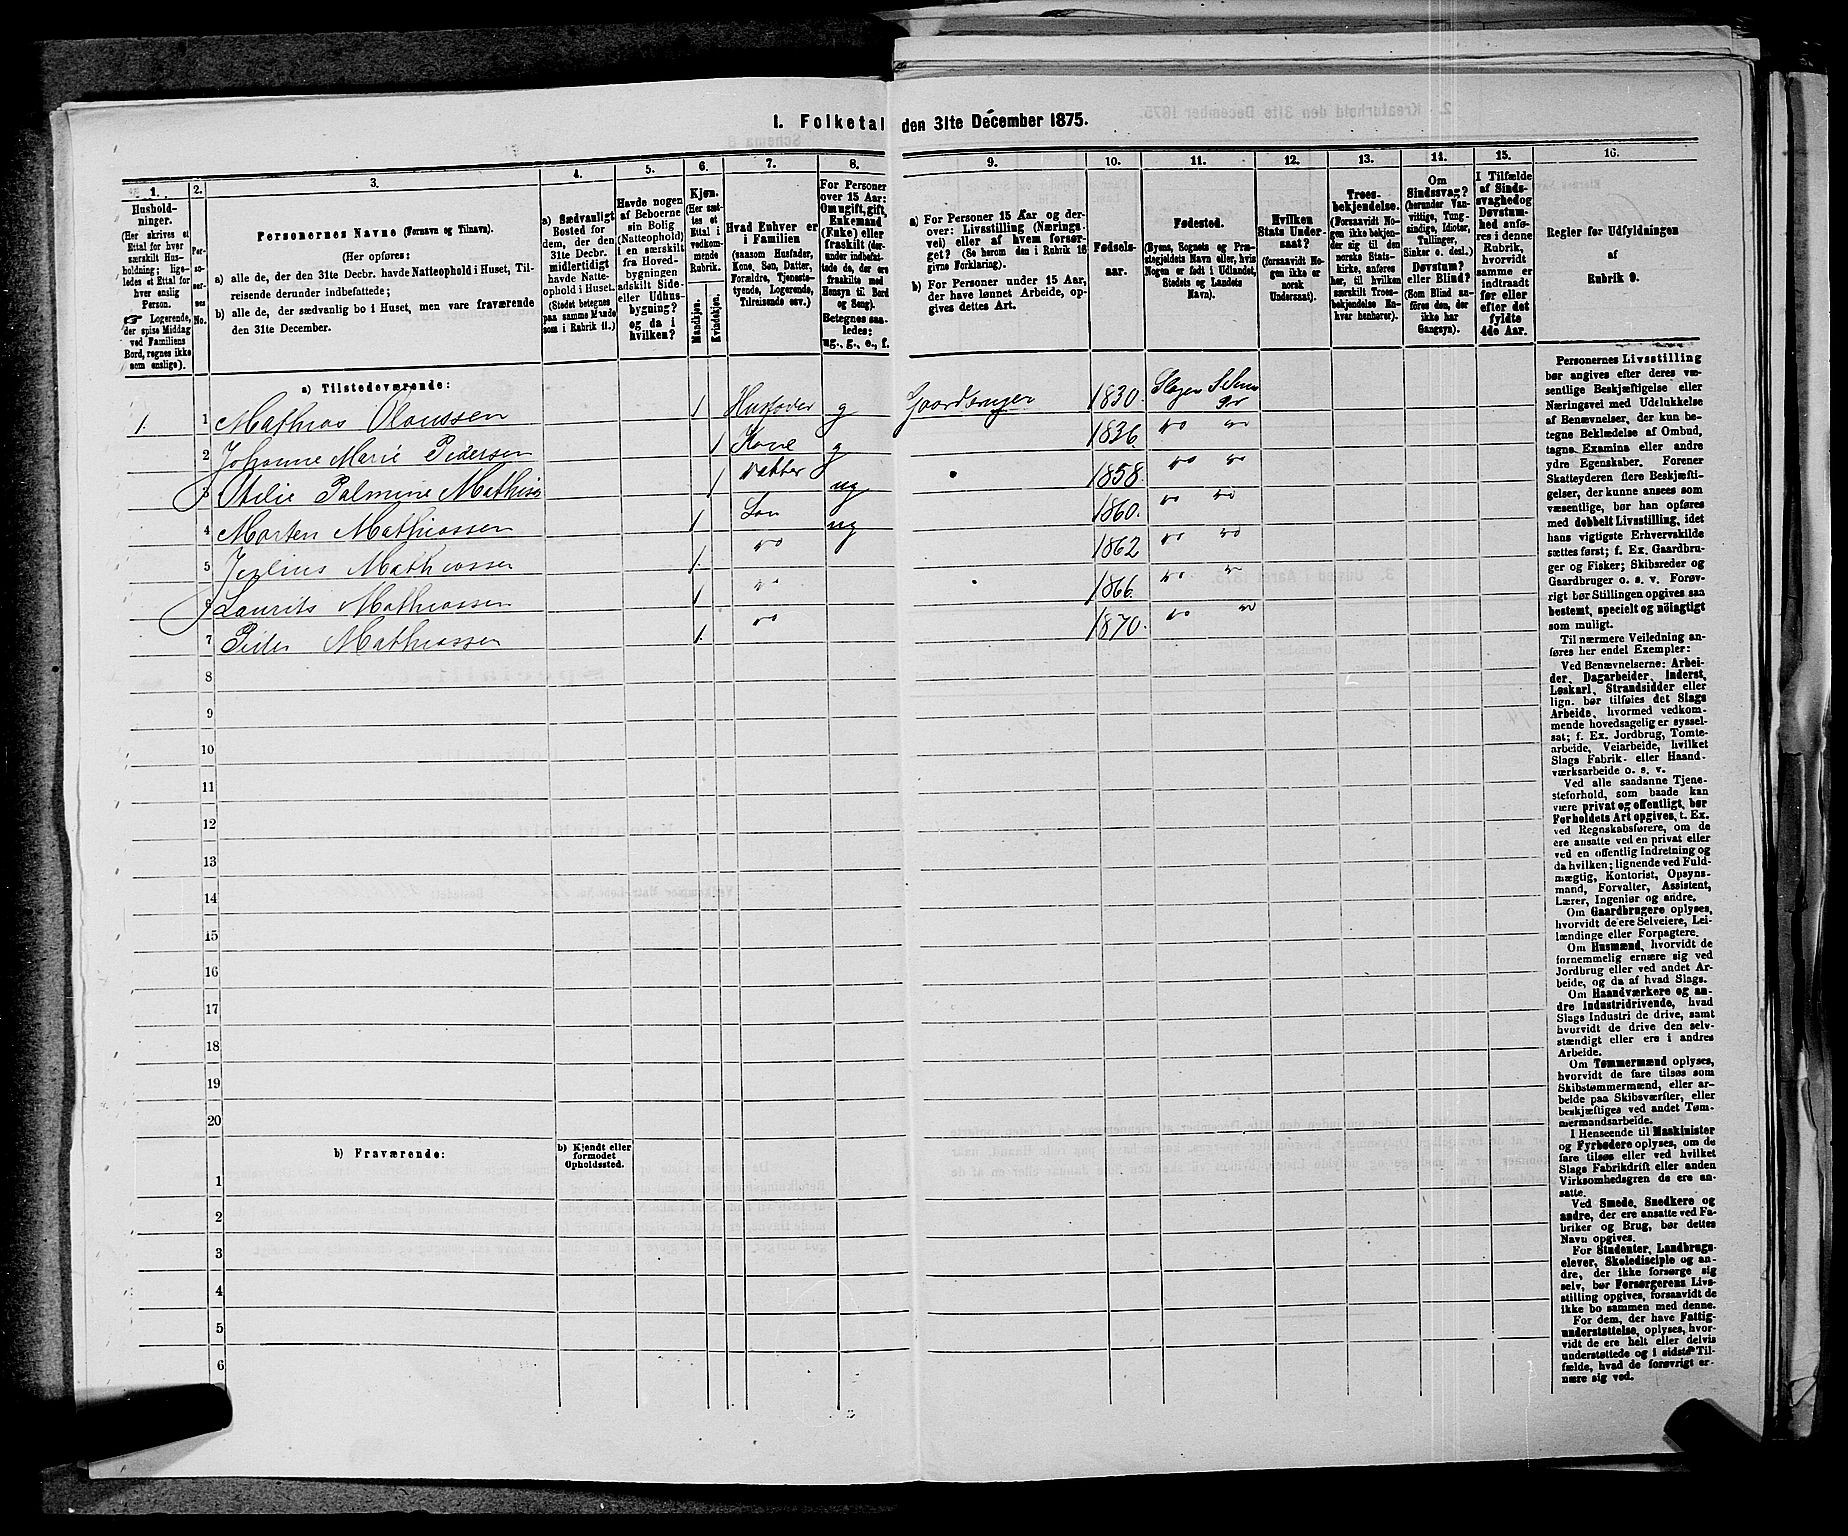 1. Folketal den 31te December 1875.
1. 2. 3. 4. 5. 6. 7. 8. 9. 10. 11. 12. 13. 14. 15. 16.
Hushold-
ninger.
(Her skrives et
Ettal for hver
særskilt Hus-
holdning; lige-
ledes et Ettal for
hver enslig
Person.
Logerende,
der spise Middag
ved Familiens
Bord, regnes ikke
som enslige).
Per-
so-
ner-
nes
No.
Personernes Navne (Fornavn og Tilnavn).
(Her opføres:
a) alle de, der den 31te Decbr. havde Natteophold i Huset, Til-
reisende derunder indbefattede;
b) alle de, der sædvanlig bo i Huset, men vare fraværende
den 31te December.
a) Sædvanligt
Bosted for
dem, der den
31te Decbr.
midlertidigt
havde Natte-
ophold i Huset.
(Stedet betegnes
paa samme Maade
som i Rubrik 11.)
Havde nogen
af Beboerne
sin Bolig
(Natteophold)
i en særskilt
fra Hoved-
bygningen
adskilt Side-
eller Udhus-
bygning?
og da i
hvilken?
Kjøn.
(Her sæt-
tes et
Ettal i
vedkom-
mende
Rubrik.
Mandkjøn.
Kvindekjøn.
Hvad Enhver er
i Familien
(saasom Husfader,
Kone, Søn, Datter,
Forældre, Tjeneste-
tyende, Logerende,
Tilreisende osv.)
For Personer
over 15 Aar:
Om ugift, gift,
Enkemand
(Enke) eller
fraskilt (der-
under indbefat-
tede de, der ere
fraskilte med
Hensyn til Bord
og Seng).
Betegnes saa-
ledes:
ug., g., e., f.
a) For Personer 15 Aar og der-
over: Livsstilling (Nærings-
vei) eller af hvem forsør-
get? (Se herom den i Rubrik 16
givne Forklaring).
b) For Personer under 15 Aar,
der have lønnet Arbeide, op-
gives dettes Art.
Fødsels-
aar.
Fødested.
(Byens, Sognets og Præ-
stegjeldets Navn eller, hvis
Nogen er født i Udlandet,
Stedets og Landets
Navn).
Hvilken
Stats Under-
saat?
(forsaavidt No-
gen ikke er
norsk
Undersaat).
Troes-
bekjendelse.
(Forsaavidt No-
gen ikke bekjen-
der sig til den
norske Stats-
kirke, anføres
her, til hvilken
særskilt Troes-
bekjendelse En-
hver henhører).
Om
Sindssvag?
(herunder Van-
vittige, Tung-
sindige, Idioter,
Tullinger,
Sinker o. desl.)
Døvstum?
eller Blind?
(Som Blind an-
føres den, der
ikke har
Gangsyn).
I Tilfælde
af Sinds-
svaghed og
Døvstum-
hed anfø-
res i denne
Rubrik,
hvorvidt
samme er
indtraadt
før eller
efter det
fyldte
4de Aar.
Regler for Udfyldningen
af
Rubrik 9.
a) Tilstedeværende:
1. 1 Mathias Olaussen 1 Husfader g Gaardbruger 1830. Slagen Sem Pr
2 Johanne Marie Pedersen 1 Kone g 1836. do do
3 Otelie Palmine Mathias 1 Datter ug 1858. do do
4 Morten Mathiassen 1 Søn ug 1860. do do
5 Julius Mathiassen 1. do 1862 do do
6 Laurits Mathiassen 1 do 1866. do do
7 Peder Mathiassen 1. do 1870. do do
8
9
10
11
12
13
14
15
16
17
18
19
20
b) Fraværende:
b) Kjendt eller
formodet
Opholdssted.
1
2
3
4
5
6
Personernes Livsstilling
bør angives efter deres væ-
sentlige Beskjæftigelse eller
Næringsvei med Udelukkelse
af Benævnelser, der kun be-
tegne Beklædelse af Ombud,
tagne Examina eller andre
ydre Egenskaber. Forener
Skatteyderen flere Beskjæfti-
gelser, der kunne ansees som
væsentlige, bør han opføres
med dobbelt Livsstilling, idet
hans vigtigste Erhvervskilde
sættes først; f. Ex. Gaardbru-
ger og Fisker; Skibsreder og
Gaardbruger o. s. v. Forøv-
rigt bør Stillingen opgives saa
bestemt, specielt og nöiagtigt
som muligt.
Til nærmere Veiledning an-
føres her endel Exempler:
Ved Benævnelserne: Arbei-
der, Dagarbeider, Inderst,
Løskarl, Strandsidder eller
lign. bør tilføies det Slags
Arbeide, hvormed vedkom-
mende hovedsagelig er syssel-
sat; f. Ex. Jordbrug, Tomte-
arbeide, Veiarbeide, hvilket
Slags Fabrik- eller Haand-
værksarbeide o. s. v.
Ved alle saadanne Tjene-
steforhold, som baade kan
være privat og offentligt, bør
Forholdets Art opgives, t. Ex.
ved Regnskabsførere, om de
ere ansatte ved en privat eller
ved en offentlig Indretning og
da hvilken; lignende ved Fuld-
mægtig, Kontorist, Opsyns-
mand, Forvalter, Assistent,
Lærer, Ingeniør og andre.
Om Gaardbrugere oplyses,
hvorvidt de ere Selveiere, Lei-
lændinge eller Forpagtere.
Om Husmænd, hvorvidt de
fornemmelig ernære sig ved
Jordbrug eller ved andet Ar-
beide, og da af hvad Slags.
Om Haandværkere og an-
dre Industridrivende, hvad
Slags Industri de drive, samt
hvorvidt de drive den selv-
stændigt eller ere i andres
Arbeide.
Om Tømmermænd oplyses,
hvorvidt de fare tilsøs som
Skibstømmermænd, eller ar-
beide paa Skibsværfter, eller
beskjæftiges ved andet Tøm-
mermandsarbeide.
I Henseende til Maskinister
og Fyrbødere oplyses, om de
fare tilsøs eller ved hvilket
Slags Fabrikdrift eller anden
Virksomhedsgren de ere an-
satte.
Ved Smede, Snedkere og
andre, der ere ansatte ved Fa-
briker og Brug, bør dettes
Navn opgives.
For Studenter, Landbrugs-
elever, Skoledisciple og an-
dre, der ikke forsørge sig
selv, bør Forsørgerens Livs-
stilling opgives, forsaavidt de
ikke bo sammen med denne.
For dem, der have Fattig-
understøttelse, oplyses, hvor-
vidt de ere helt eller delvis
understøttede og i sidste Til-
fælde, hvad de forøvrigt er-
nære sig ved.